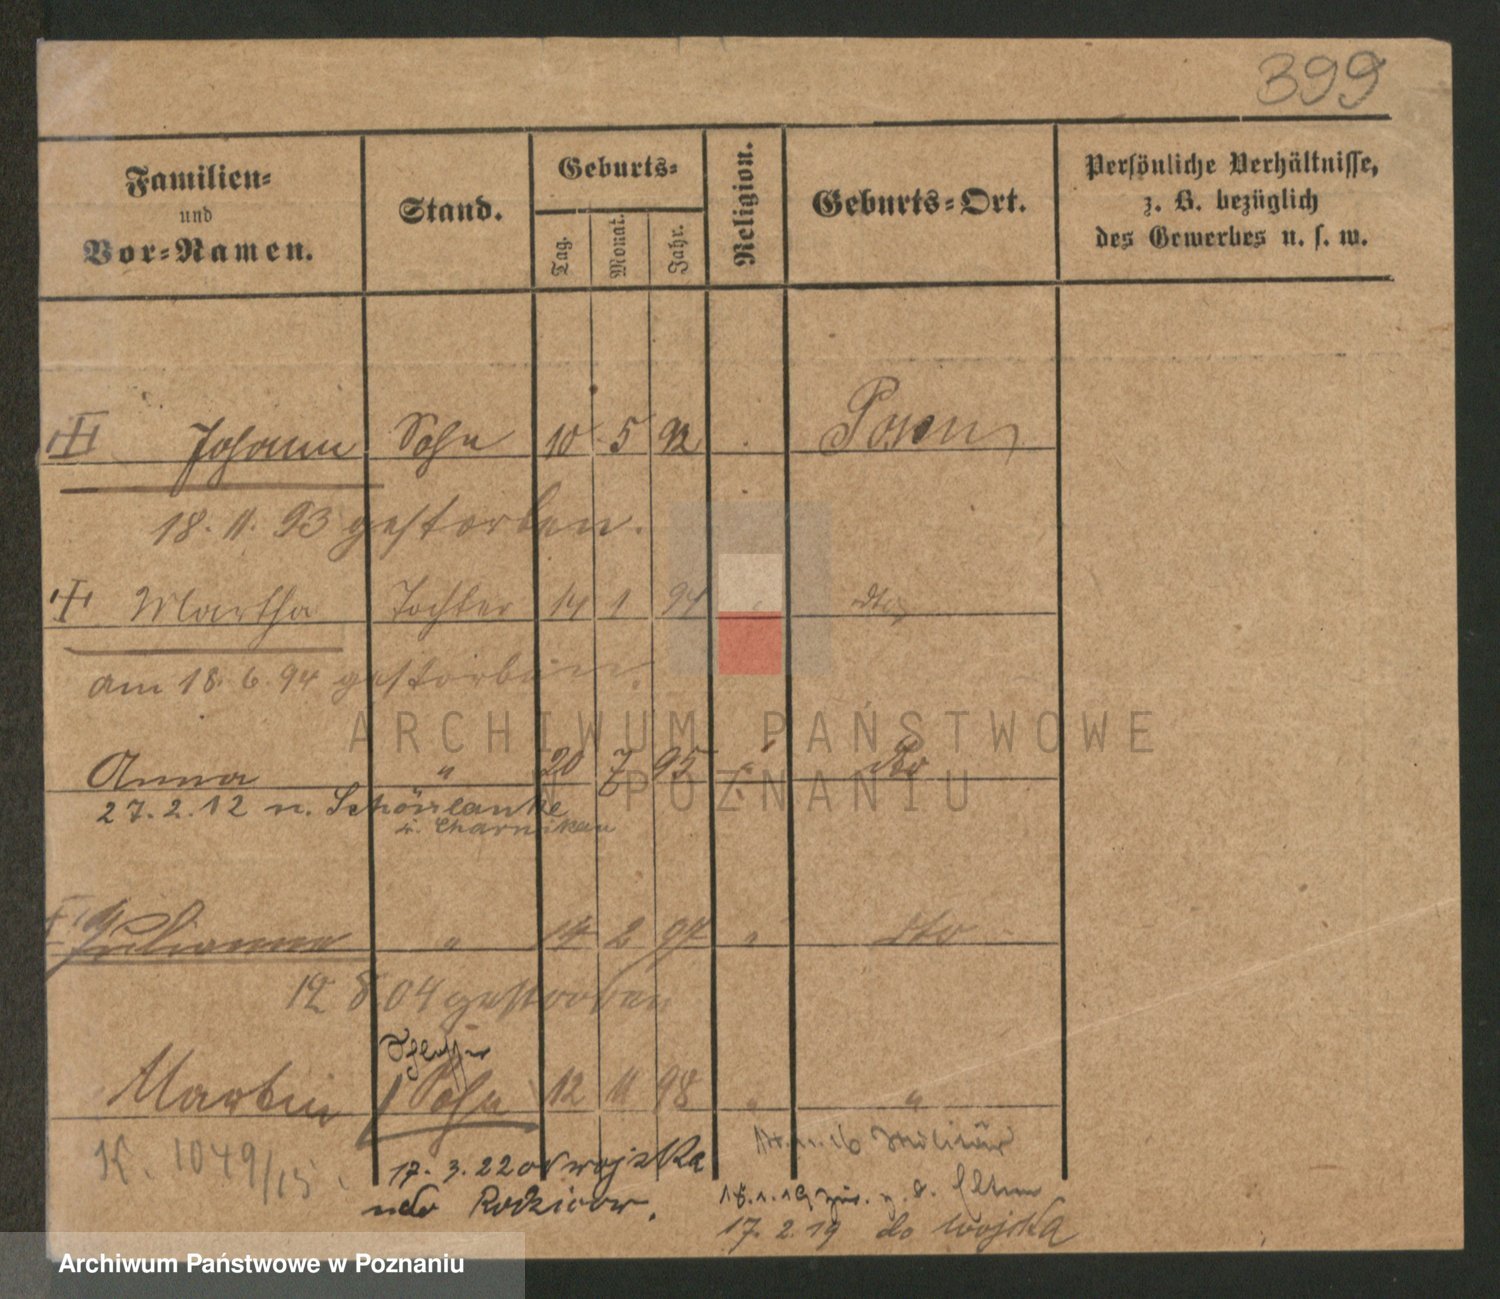 399
Familien-
und
Vor-Namen.
Stand.
Geburts-
Tag.
Monat.
Jahr.
Religion.
Geburts-Ort.
Persönliche Verhältnisse,
z. B. bezüglich
des Gewerbes u. s. w.
Johann Sohn 10 5 92 Posen
18. 11. 93 gestorben.
Martha Tochter 14 1 94 dto
am 18. 6. 94 gestorben.
Anna " 20 7 95 " dto
27. 2. 12 n. Schönlanke
Czarnikau
Julianna " 14 2 97 " dto
12 8 04 gestorben
Schlosser
Martin Sohn 12 11 98 " "
K. 1049/15.
Militär
17. 3. 22 od wojska
do Rodzicow.
18. 1. 19 zur. Eltern
17. 2. 19 do wojska
ARCHIWUM PAŃSTWOWE
W POZNANIU
Archiwum Państwowe w Poznaniu